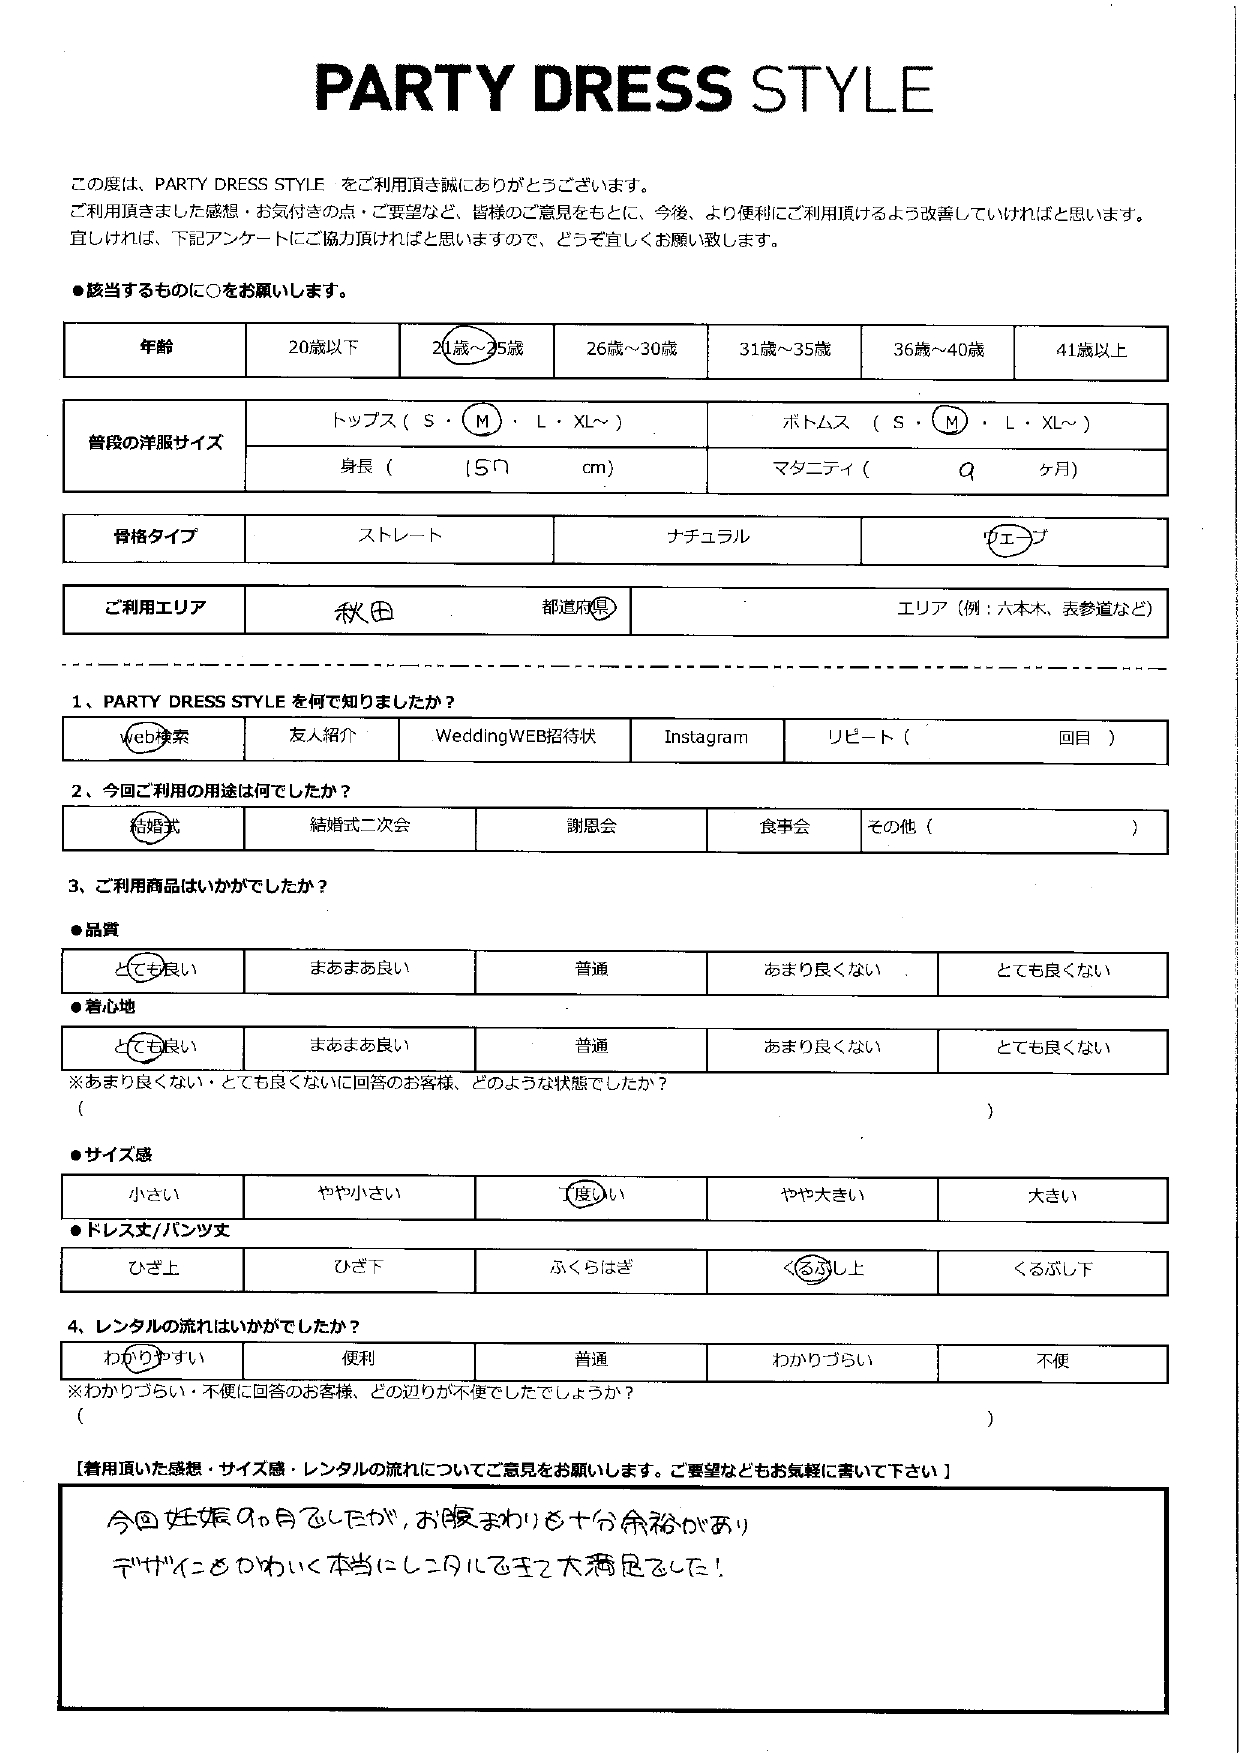 PARTY DRESS STYLE
この度は、PARTY DRESS STYLE をご利用頂き誠にありがとうございます。
ご利用頂きました感想・お気付きの点・ご要望など、皆様のご意見をもとに、今後、より便利にご利用頂けるよう改善していければと思います。
宜しければ、下記アンケートにご協力頂ければと思いますので、どうぞ宜しくお願い致します。
●該当するものに○をお願いします。
年齢 20歳以下 21歳～25歳 26歳～30歳 31歳～35歳 36歳～40歳 41歳以上
普段の洋服サイズ トップス ( S ・ M ・ L ・ XL～ ) ボトムス ( S ・ M ・ L ・ XL～ )
身長 ( 157 cm) マタニティ ( 9 ヶ月)
骨格タイプ ストレート ナチュラル ウェーブ
ご利用エリア 秋田 都道府県 エリア（例：六本木、表参道など）
1、PARTY DRESS STYLE を何で知りましたか？
web検索 友人紹介 WeddingWEB招待状 Instagram リピート ( 回目 )
2、今回ご利用の用途は何でしたか？
結婚式 結婚式二次会 謝恩会 食事会 その他 ( )
3、ご利用商品はいかがでしたか？
●品質
とても良い まあまあ良い 普通 あまり良くない とても良くない
●着心地
とても良い まあまあ良い 普通 あまり良くない とても良くない
※あまり良くない・とても良くないに回答のお客様、どのような状態でしたか？
( )
●サイズ感
小さい やや小さい 丁度いい やや大きい 大きい
●ドレス丈/パンツ丈
ひざ上 ひざ下 ふくらはぎ くるぶし上 くるぶし下
4、レンタルの流れはいかがでしたか？
わかりやすい 便利 普通 わかりづらい 不便
※わかりづらい・不便に回答のお客様、どの辺りが不便でしたでしょうか？
( )
【着用頂いた感想・サイズ感・レンタルの流れについてご意見をお願いします。ご要望などもお気軽に書いて下さい】
今回妊娠9ヵ月でしたが、お腹まわりも十分余裕があり
デザインもかわいく本当にレンタルできて大満足でした！